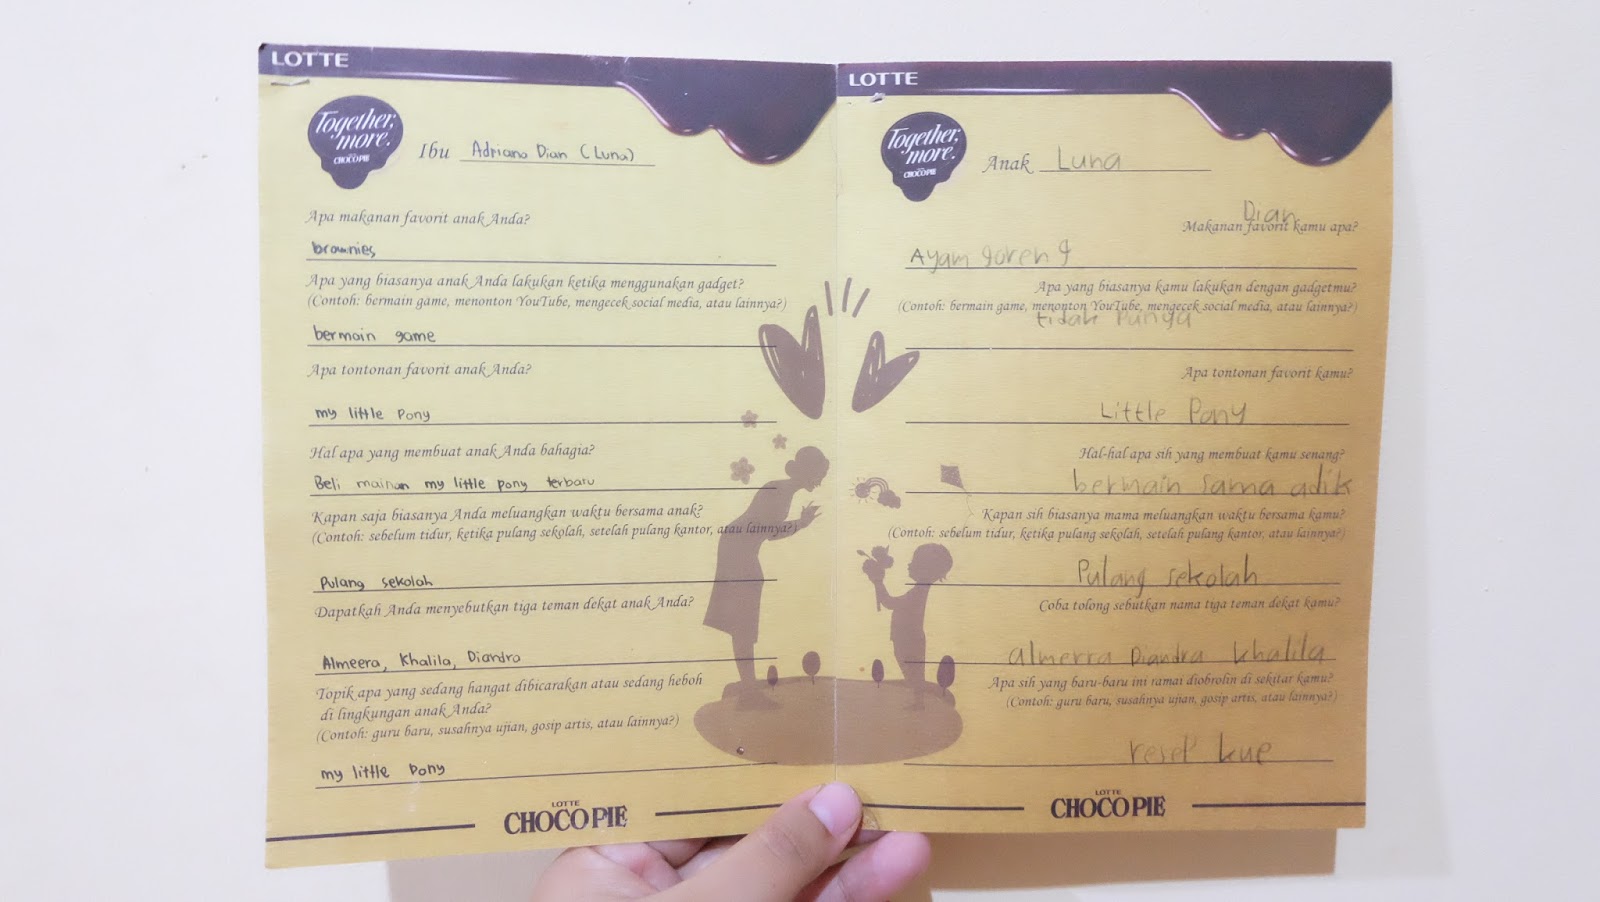 LOTTE
Together,
more.
CHOCOPIE
Ibu Adriana Dian (Luna)
Apa makanan favorit anak Anda?
brownies
Apa yang biasanya anak Anda lakukan ketika menggunakan gadget?
(Contoh: bermain game, menonton YouTube, mengecek social media, atau lainnya?)
bermain game
Apa tontonan favorit anak Anda?
my little Pony
Hal apa yang membuat anak Anda bahagia?
Beli mainan my little pony terbaru
Kapan saja biasanya Anda meluangkan waktu bersama anak?
(Contoh: sebelum tidur, ketika pulang sekolah, setelah pulang kantor, atau lainnya?)
Pulang sekolah
Dapatkah Anda menyebutkan tiga teman dekat anak Anda?
Almeera, Khalila, Diandra
Topik apa yang sedang hangat dibicarakan atau sedang heboh
di lingkungan anak Anda?
(Contoh: guru baru, susahnya ujian, gosip artis, atau lainnya?)
my little Pony
LOTTE
CHOCOPIE
LOTTE
Together,
more.
CHOCOPIE
Anak Luna
Dian
Makanan favorit kamu apa?
Ayam goreng
Apa yang biasanya kamu lakukan dengan gadgetmu?
(Contoh: bermain game, menonton YouTube, mengecek social media, atau lainnya?)
tidak Punya
Apa tontonan favorit kamu?
Little Pony
Hal-hal apa sih yang membuat kamu senang?
bermain sama adik
Kapan sih biasanya mama meluangkan waktu bersama kamu?
(Contoh: sebelum tidur, ketika pulang sekolah, setelah pulang kantor, atau lainnya?)
Pulang sekolah
Coba tolong sebutkan nama tiga teman dekat kamu?
almerra Diandra khalila
Apa sih yang baru-baru ini ramai diobrolin di sekitar kamu?
(Contoh: guru baru, susahnya ujian, gosip artis, atau lainnya?)
resep kue
LOTTE
CHOCOPIE